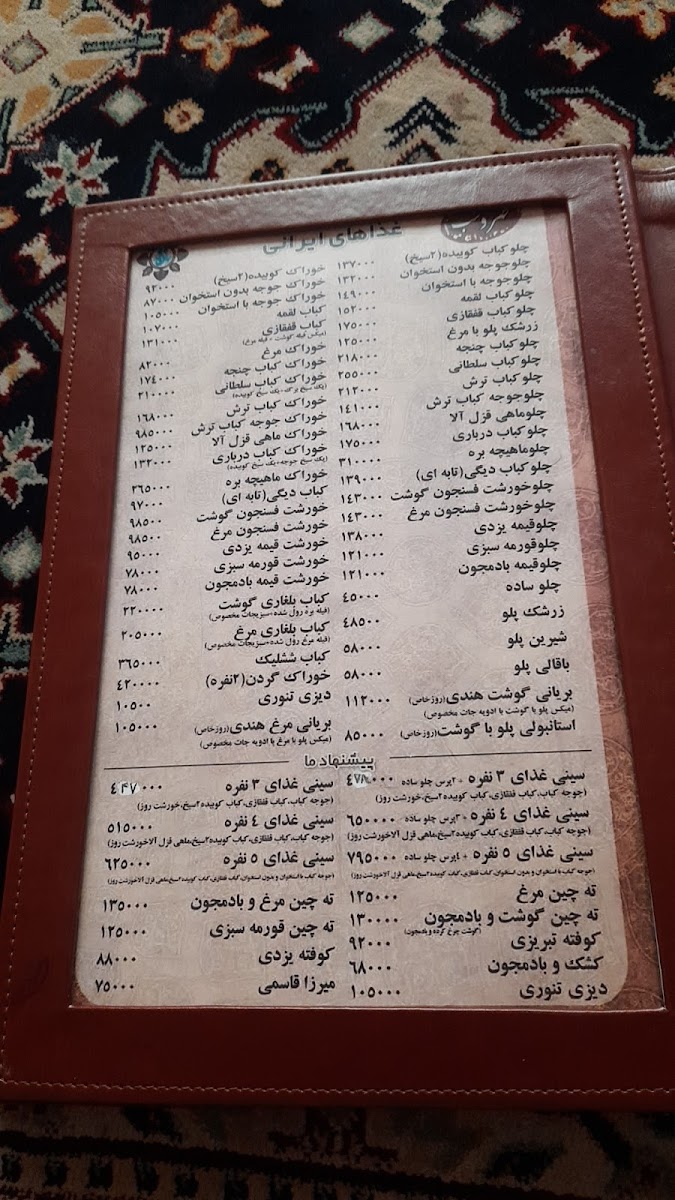 غذاهای ایرانی
چلو کباب کوبیده(۲سیخ) ۱۳۷۰۰۰
چلوجوجه بدون استخوان ۱۳۲۰۰۰
چلوجوجه با استخوان ۱۴۹۰۰۰
چلو کباب لقمه ۱۵۲۰۰۰
چلو کباب قفقازی ۱۷۵۰۰۰
زرشک پلو با مرغ ۱۲۵۰۰۰
چلو کباب چنجه ۲۱۸۰۰۰
چلو کباب سلطانی ۲۵۵۰۰۰
چلو کباب ترش ۲۱۲۰۰۰
چلوجوجه کباب ترش ۱۴۱۰۰۰
چلوماهی قزل آلا ۱۶۸۰۰۰
چلو کباب درباری ۱۷۵۰۰۰
چلوماهیچه بره ۳۱۰۰۰۰
چلو کباب دیگی(تابه ای) ۱۳۹۰۰۰
چلوخورشت فسنجون گوشت ۱۴۳۰۰۰
چلوخورشت فسنجون مرغ ۱۴۳۰۰۰
چلوقیمه یزدی ۱۳۸۰۰۰
چلوقورمه سبزی ۱۲۱۰۰۰
چلوقیمه بادمجون ۱۲۱۰۰۰
چلو ساده ۴۵۰۰۰
زرشک پلو ۴۸۵۰۰
شیرین پلو ۵۸۰۰۰
باقالی پلو ۵۸۰۰۰
بریانی گوشت هندی(روزخاص) ۱۱۲۰۰۰
(میکس پلو با گوشت با ادویه جات مخصوص)
استانبولی پلو با گوشت(روزخاص) ۸۵۰۰۰
خوراک کباب کوبیده(۲سیخ) ۹۲۰۰۰
خوراک جوجه بدون استخوان ۸۷۰۰۰
خوراک جوجه با استخوان ۱۰۵۰۰۰
کباب لقمه ۱۰۷۰۰۰
کباب قفقازی ۱۳۱۰۰۰
(میکس فیله گوشت + فیله مرغ)
خوراک مرغ ۸۲۰۰۰
خوراک کباب چنجه ۱۷۴۰۰۰
خوراک کباب سلطانی ۲۱۰۰۰۰
(یک سیخ برگ-یک سیخ کوبیده)
خوراک کباب ترش ۱۶۸۰۰۰
خوراک جوجه کباب ترش ۹۸۵۰۰۰
خوراک ماهی قزل آلا ۱۲۵۰۰۰
خوراک کباب درباری ۱۳۲۰۰۰
(یک سیخ جوجه-یک سیخ کوبیده)
خوراک ماهیچه بره ۲۶۵۰۰۰
کباب دیگی(تابه ای) ۹۷۰۰۰
خورشت فسنجون گوشت ۹۸۵۰۰
خورشت فسنجون مرغ ۹۸۵۰۰
خورشت قیمه یزدی ۹۵۰۰۰
خورشت قورمه سبزی ۷۸۰۰۰
خورشت قیمه بادمجون ۷۸۰۰۰
کباب بلغاری گوشت ۲۲۰۰۰۰
(فیله بره رول شده+سبزیجات مخصوص)
کباب بلغاری مرغ ۲۰۵۰۰۰
(فیله مرغ رول شده+سبزیجات مخصوص)
کباب ششلیک ۳۶۵۰۰۰
خوراک گردن(۲نفره) ۴۲۰۰۰۰
دیزی تنوری ۱۰۵۰۰
بریانی مرغ هندی(روزخاص) ۱۰۵۰۰۰
(میکس پلو با مرغ با ادویه جات مخصوص)
پیشنهاد ما
سینی غذای ۳ نفره + ۲پرس چلو ساده ۴۷۸۰۰۰
(جوجه کباب،کباب قفقازی،کباب کوبیده۲سیخ،خورشت روز)
سینی غذای ۴ نفره + ۳پرس چلو ساده ۶۵۰۰۰۰
(جوجه کباب،کباب قفقازی،کباب کوبیده۲سیخ،ماهی قزل آلاخورشت روز)
سینی غذای ۵ نفره + ۴پرس چلو ساده ۷۹۵۰۰۰
(جوجه کباب با استخوان و بدون استخوان،کباب قفقازی،کباب کوبیده۲سیخ،ماهی قزل آلاخورشت روز)
ته چین مرغ ۱۲۵۰۰۰
ته چین گوشت و بادمجون ۱۳۰۰۰۰
(گوشت چرخ کرده و بادمجون)
کوفته تبریزی ۹۲۰۰۰
کشک و بادمجون ۶۸۰۰۰
دیزی تنوری ۱۰۵۰۰۰
سینی غذای ۳ نفره ۴۴۷۰۰۰
(جوجه کباب،کباب قفقازی،کباب کوبیده۲سیخ،خورشت روز)
سینی غذای ۴ نفره ۵۱۵۰۰۰
(جوجه کباب،کباب قفقازی،کباب کوبیده۲سیخ،ماهی قزل آلاخورشت روز)
سینی غذای ۵ نفره ۶۲۵۰۰۰
(جوجه کباب با استخوان و بدون استخوان،کباب قفقازی،کباب کوبیده۲سیخ،ماهی قزل آلاخورشت روز)
ته چین مرغ و بادمجون ۱۳۵۰۰۰
ته چین قورمه سبزی ۱۲۵۰۰۰
کوفته یزدی ۸۸۰۰۰
میرزا قاسمی ۷۵۰۰۰